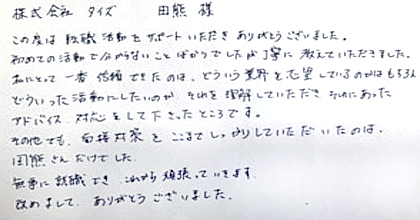 株式会社 タイズ 田熊 様
この度は転職活動をサポートいただきありがとうございました。
初めての活動で分からないことばかりでしたが丁寧に教えていただきました。
私にとって一番信頼できたのは、どういう業界を志望しているのかはもちろん
どういった活動にしたいのか、それを理解していただき それにあった
アドバイス、対応をして下さったところです。
その他でも、面接対策をここまでしっかりしていただいたのは、
田熊さんだけでした。
無事に就職でき これから頑張っていきます。
改めまして、ありがとうございました。